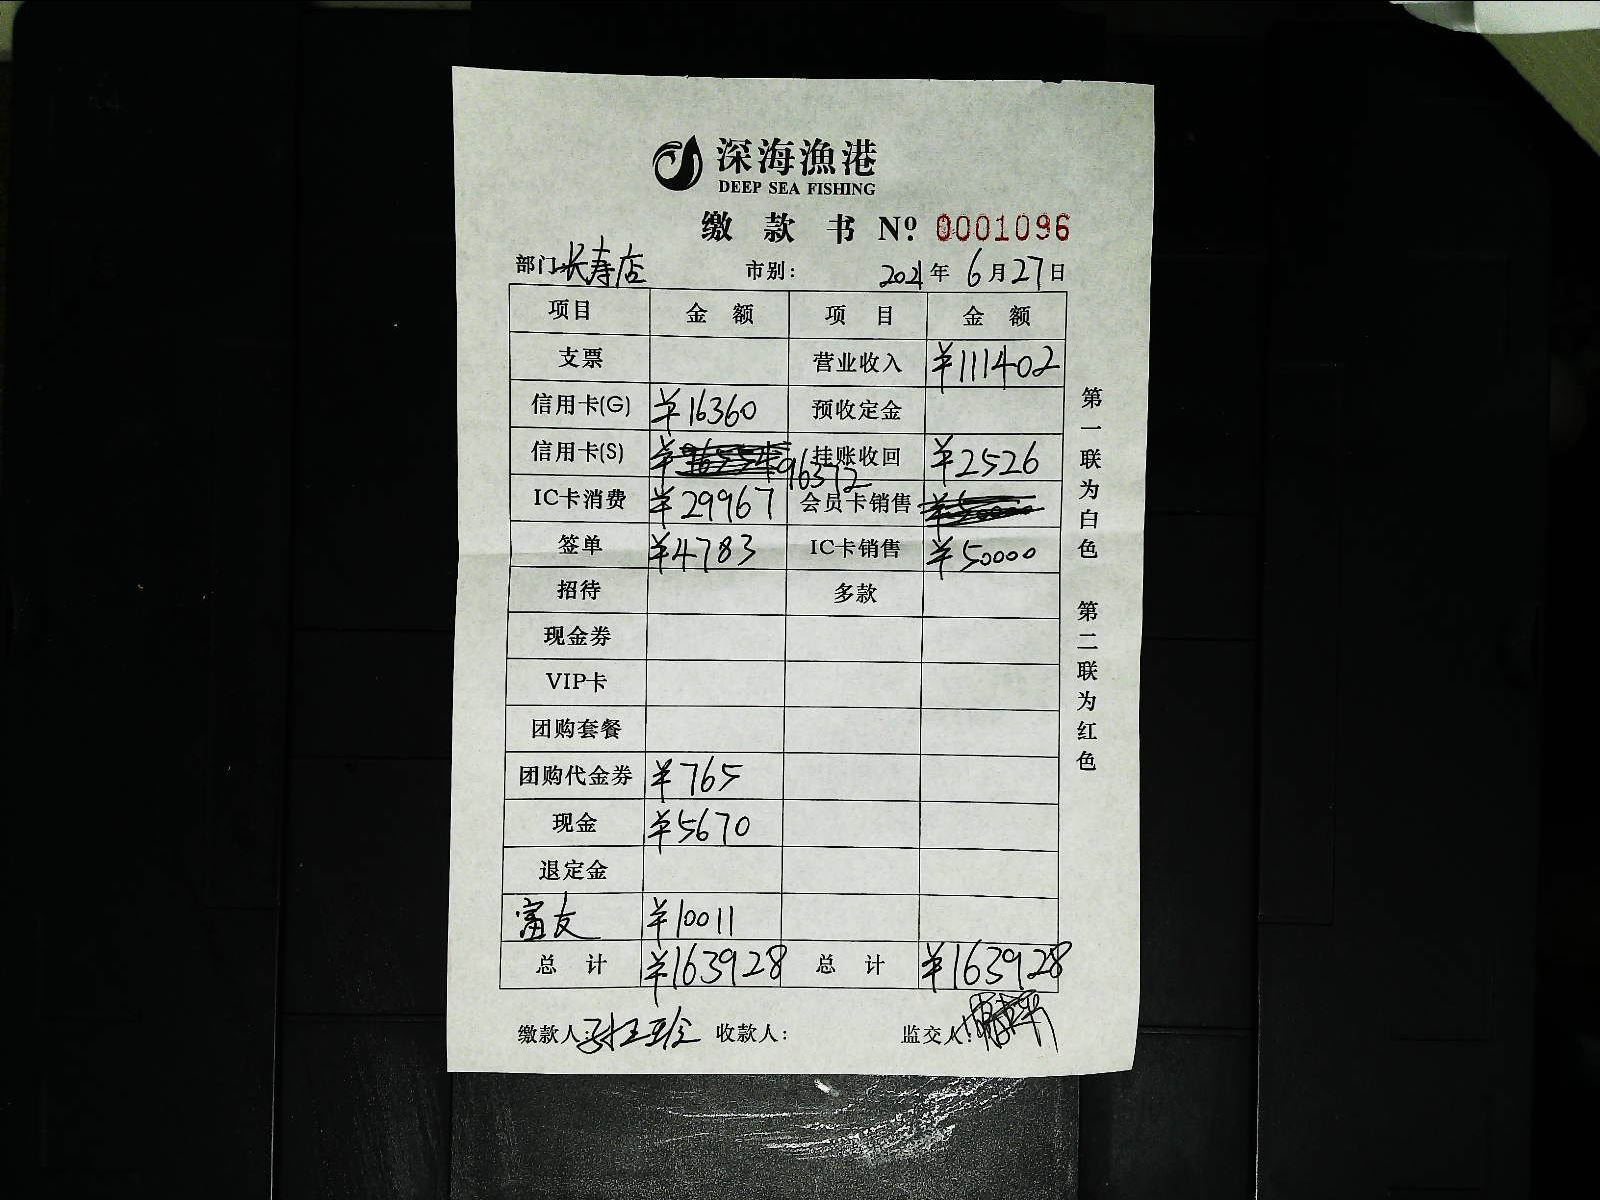 深海漁港
DEEP SEA FISHING
缴款书 Nº 0001096
部门: 长寿店 市别: 2021年6月27日
项目 金额 项目 金额
支票 营业收入 ¥111402
信用卡(G) ¥16360 预收定金
信用卡(S) ¥ 96372 挂账收回 ¥2526
IC卡消费 ¥29967 会员卡销售
签单 ¥4783 IC卡销售 ¥50000
招待 多款
现金券
VIP卡
团购套餐
团购代金券 ¥765
现金 ¥5670
退定金
富友 ¥10011
总计 ¥163928 总计 ¥163928
缴款人: 收款人: 监交人:
第一联为白色 第二联为红色